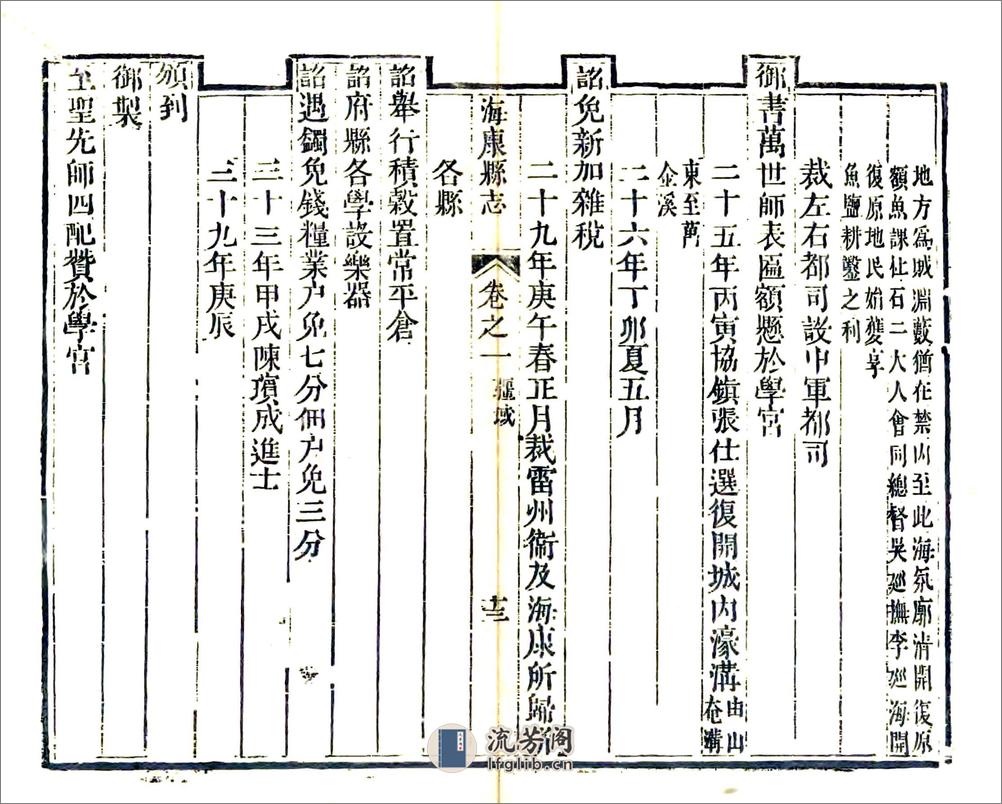 地方爲賊淵藪猶在禁內至此海氛廓清開復原
額魚課杜石二大人會同總督吳廵撫李廵海開
復原地民始獲享
魚鹽耕鑿之利
裁左右都司設中軍都司
御書萬世師表匾額懸於學宮
二十五年丙寅協鎮張仕選復開城内濠溝由山
庵溝
東至萬
金溪
二十六年丁卯夏五月
詔免新加雜稅
二十九年庚午春正月裁雷州衞及海康所歸併
海康縣志
卷之一
疆域
十三
各縣
詔舉行積穀置常平倉
詔府縣各學設樂器
詔遇蠲免錢糧業户免七分佃户免三分
三十三年甲戌陳璸成進士
三十九年庚辰
頒到
御製
至聖先師四配贊於學宮
流芳阁
lfglib.cn